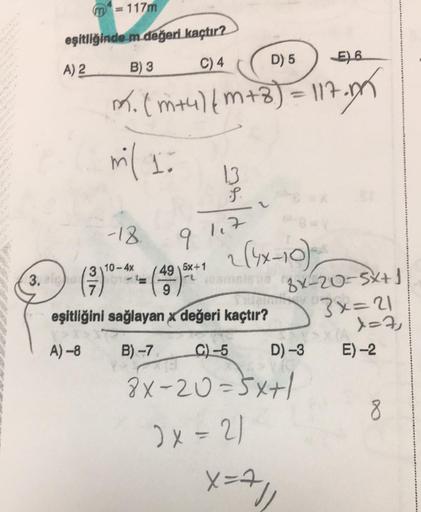 m⁴ = 117m
eşitliğinde m değeri kaçtır?
A) 2 B) 3 C) 4 D) 5 E) 6
m.(m+4)(m+8) = 117.m
m( 1.
13
9
-18 9 1,7
2(4x-10)
3. (3/7)^10-4x = (49/9)^5x+1
8x-20=5x+1
3x=21
x=7,
eşitliğini sağlayan x değeri kaçtır?
A) -8 B) -7 C) -5 D) -3 E) -2
8x-20=5x+1
3x=21
8
x=7,,